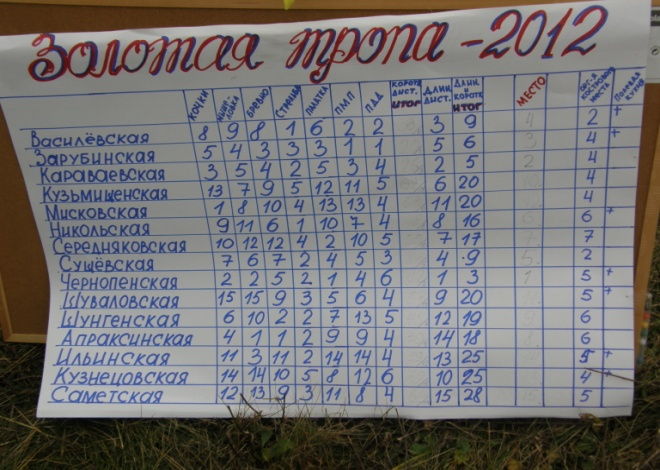 Золотая тропа - 2012
КОЧКИ БРЕВНО СТРЕЛЬБА ПАЛАТКА ПМП ПДД КОРОТК. ДИСТ. ИТОГ ДЛИН. ДИСТ. ДЛИН. И КОРОТК. ИТОГ МЕСТО ОРГ-Я КОСТРОВОГО МЕСТА Полевая кухня
Василёвская 8 9 8 1 6 2 2 3 9 4 2 +
Зарубинская 5 4 3 3 3 1 1 5 6 3 4 +
Караваевская 3 5 4 2 5 3 4 2 5 2 4
Кузьмищенская 13 7 9 5 12 11 5 6 20 4
Мисковская 1 8 10 4 13 13 4 11 20 4
Никольская 9 11 6 1 10 7 4 8 16 6 6 +
Середняковская 10 12 12 4 2 10 5 7 17 7 7
Сущёвская 7 6 7 2 4 5 3 4 9 5 2
Чернопенская 2 2 5 2 1 4 6 1 3 1 5 +
Шуваловская 15 15 9 3 5 6 4 9 20 5 +
Шунгенская 6 10 2 2 7 13 5 12 19 6
Апраксинская 4 1 1 2 9 9 4 14 18 8 6
Ильинская 11 3 11 2 14 14 4 13 25 5 +
Кузнецовская 14 14 10 5 8 12 6 10 25 4 +
Саметская 12 13 9 3 11 8 4 15 28 5